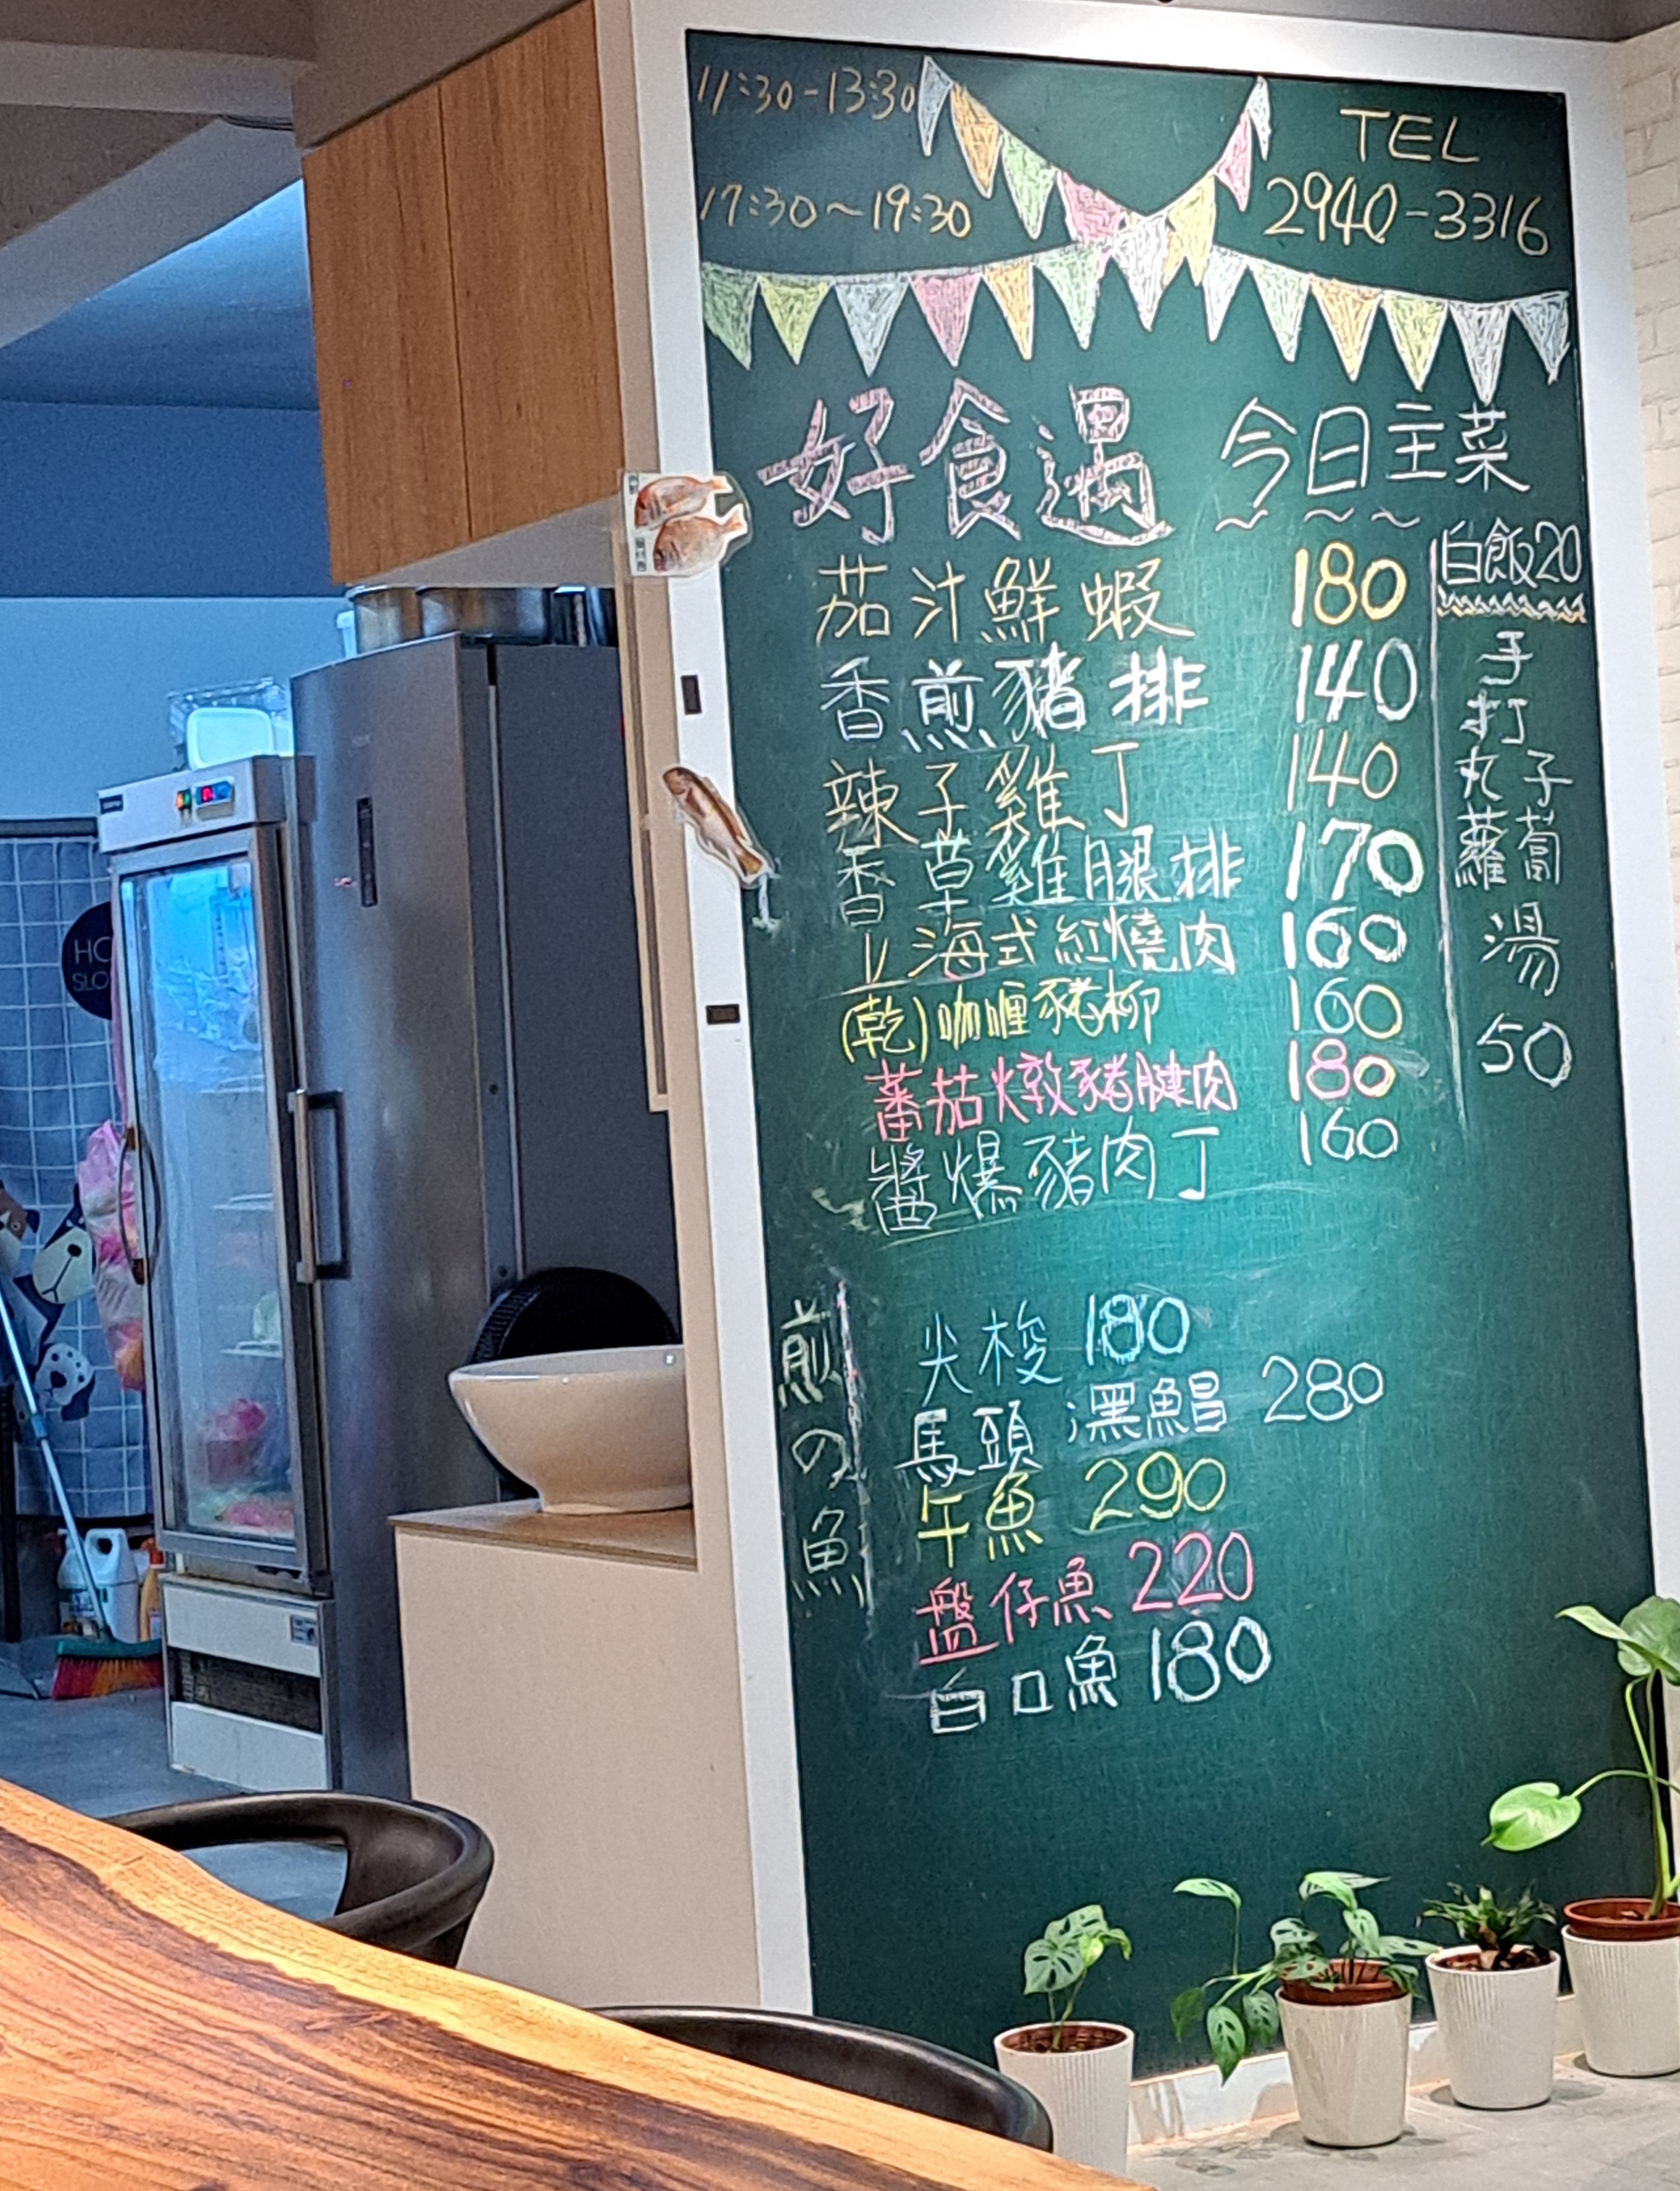 11:30-13:30
17:30~19:30
TEL
2940-3316
好食遇
今日主菜
茄汁鮮蝦 180
香煎豬排 140
辣子雞丁 140
香草雞腿排 170
上海式紅燒肉 160
(乾)咖喱豬柳 160
蕃茄燉豬腱肉 180
醬爆豬肉丁 160
白飯20
手
打
丸子
蘿蔔
湯
50
煎
の
魚
尖梭 180
馬頭 黑鯧 280
午魚 290
盤仔魚 220
白口魚 180
HO
SLO